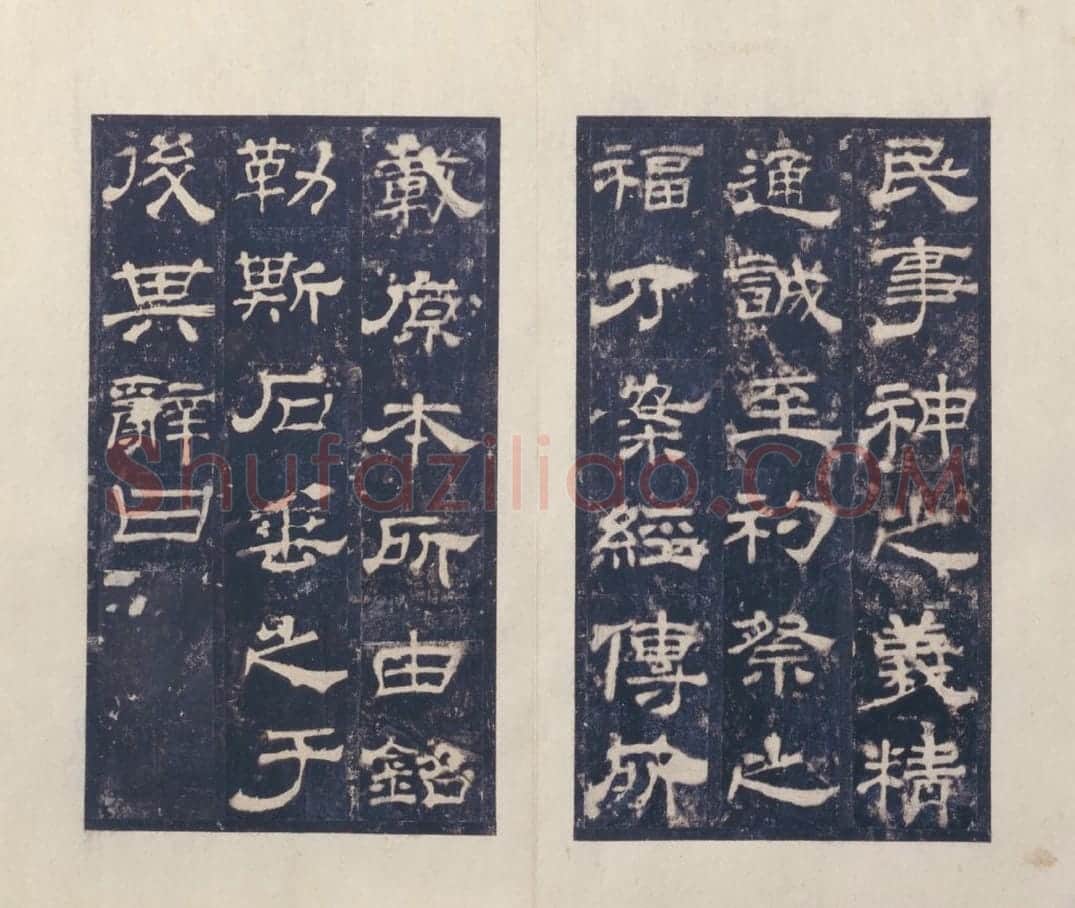 民事神之義精
通誠至礿祭之
福乃案經傳所
載原本所由銘
勒斯石垂之于
後其辭曰
Shufaziliao.COM